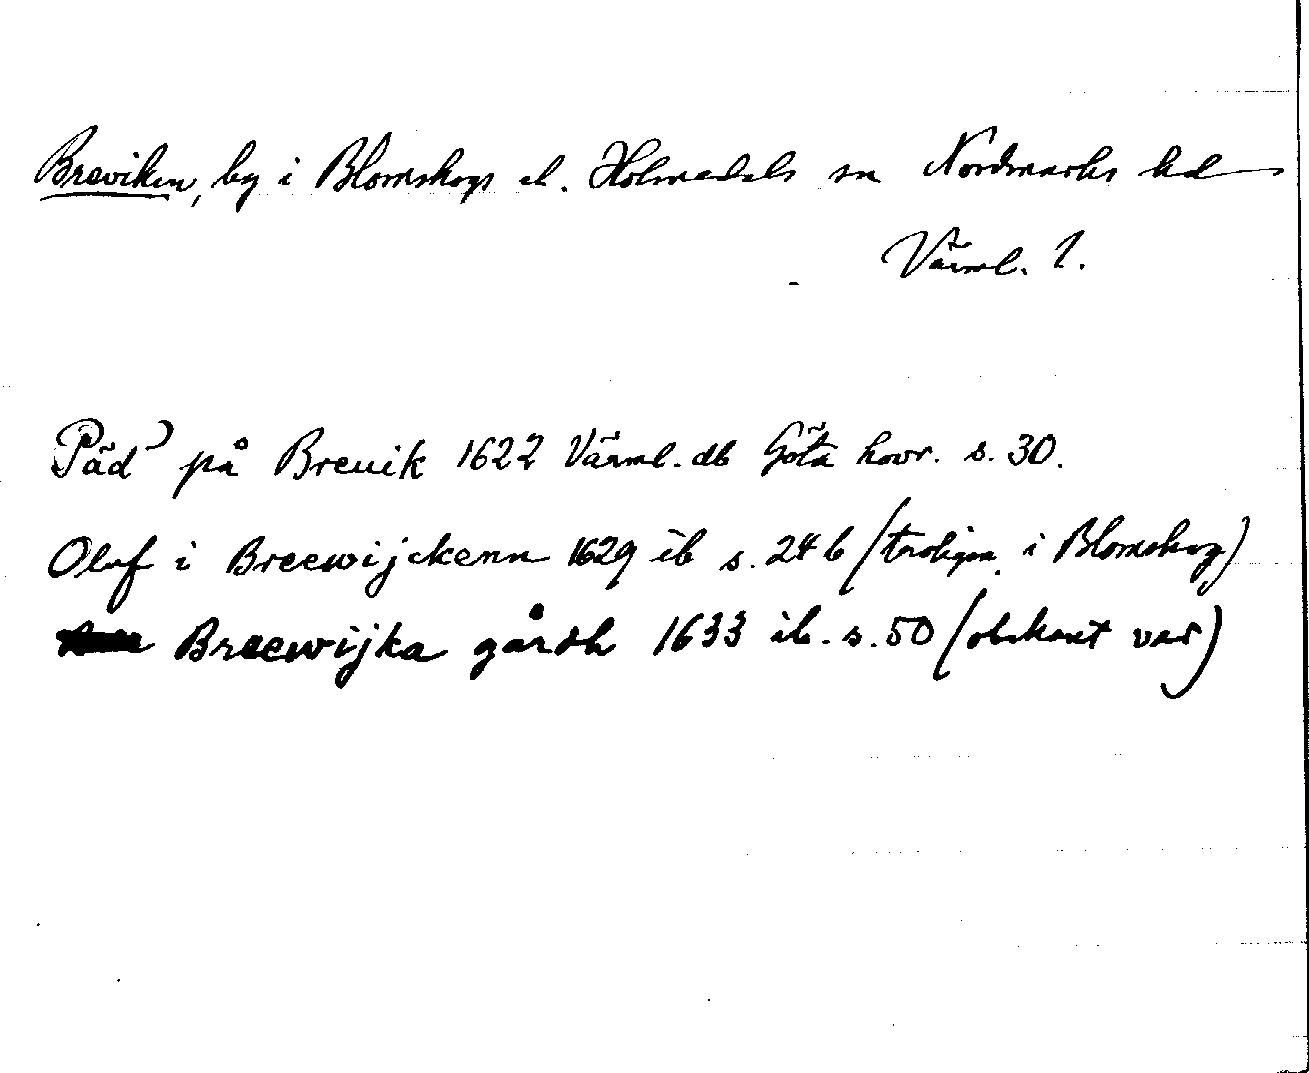 Breviken, by i Blomskogs el. Holmedals sn Nordmarks hd
Värml. l.
Päd på Breuik 1622 Värml. db Göta hovr. s. 30.
Oluf i Breewijckenn 1629 ib s. 24 b (troligen i Blomskog)
Breewijka gårdh 1633 ib. s. 50 (obekant var)